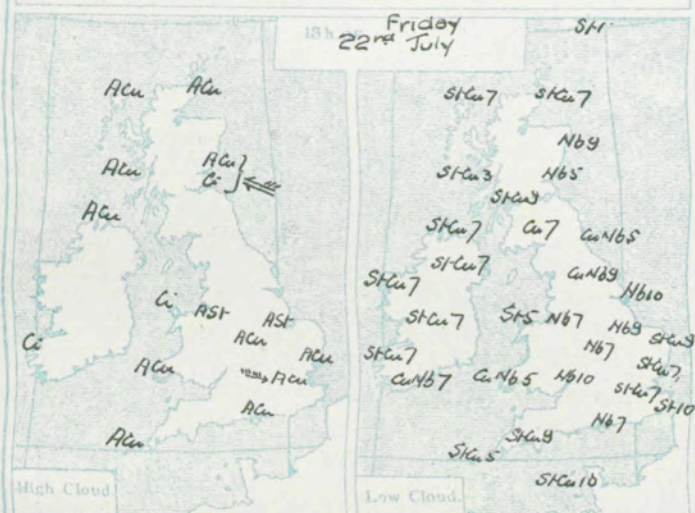 Friday
22nd July
13h
ACu ACu
ACu
ACu
Ci
ACu
Ci
ASt
ASt
ACu
ACu
Ci
ACu
ACu
ACu
ACu
High Cloud
St
StCu7 StCu7
Nb9
StCu3 Nb5
StCu9
StCu7 Cu7
CuNb5
StCu7
CuNb9
StCu7
Nb10
StCu7 St5 Nb7 Nb9
StCu9
Nb7
StCu7
StCu7
CuNb7 CuNb5 Nb10
StCu7
St10
Nb7
StCu9
StCu5
StCu10
Low Cloud.